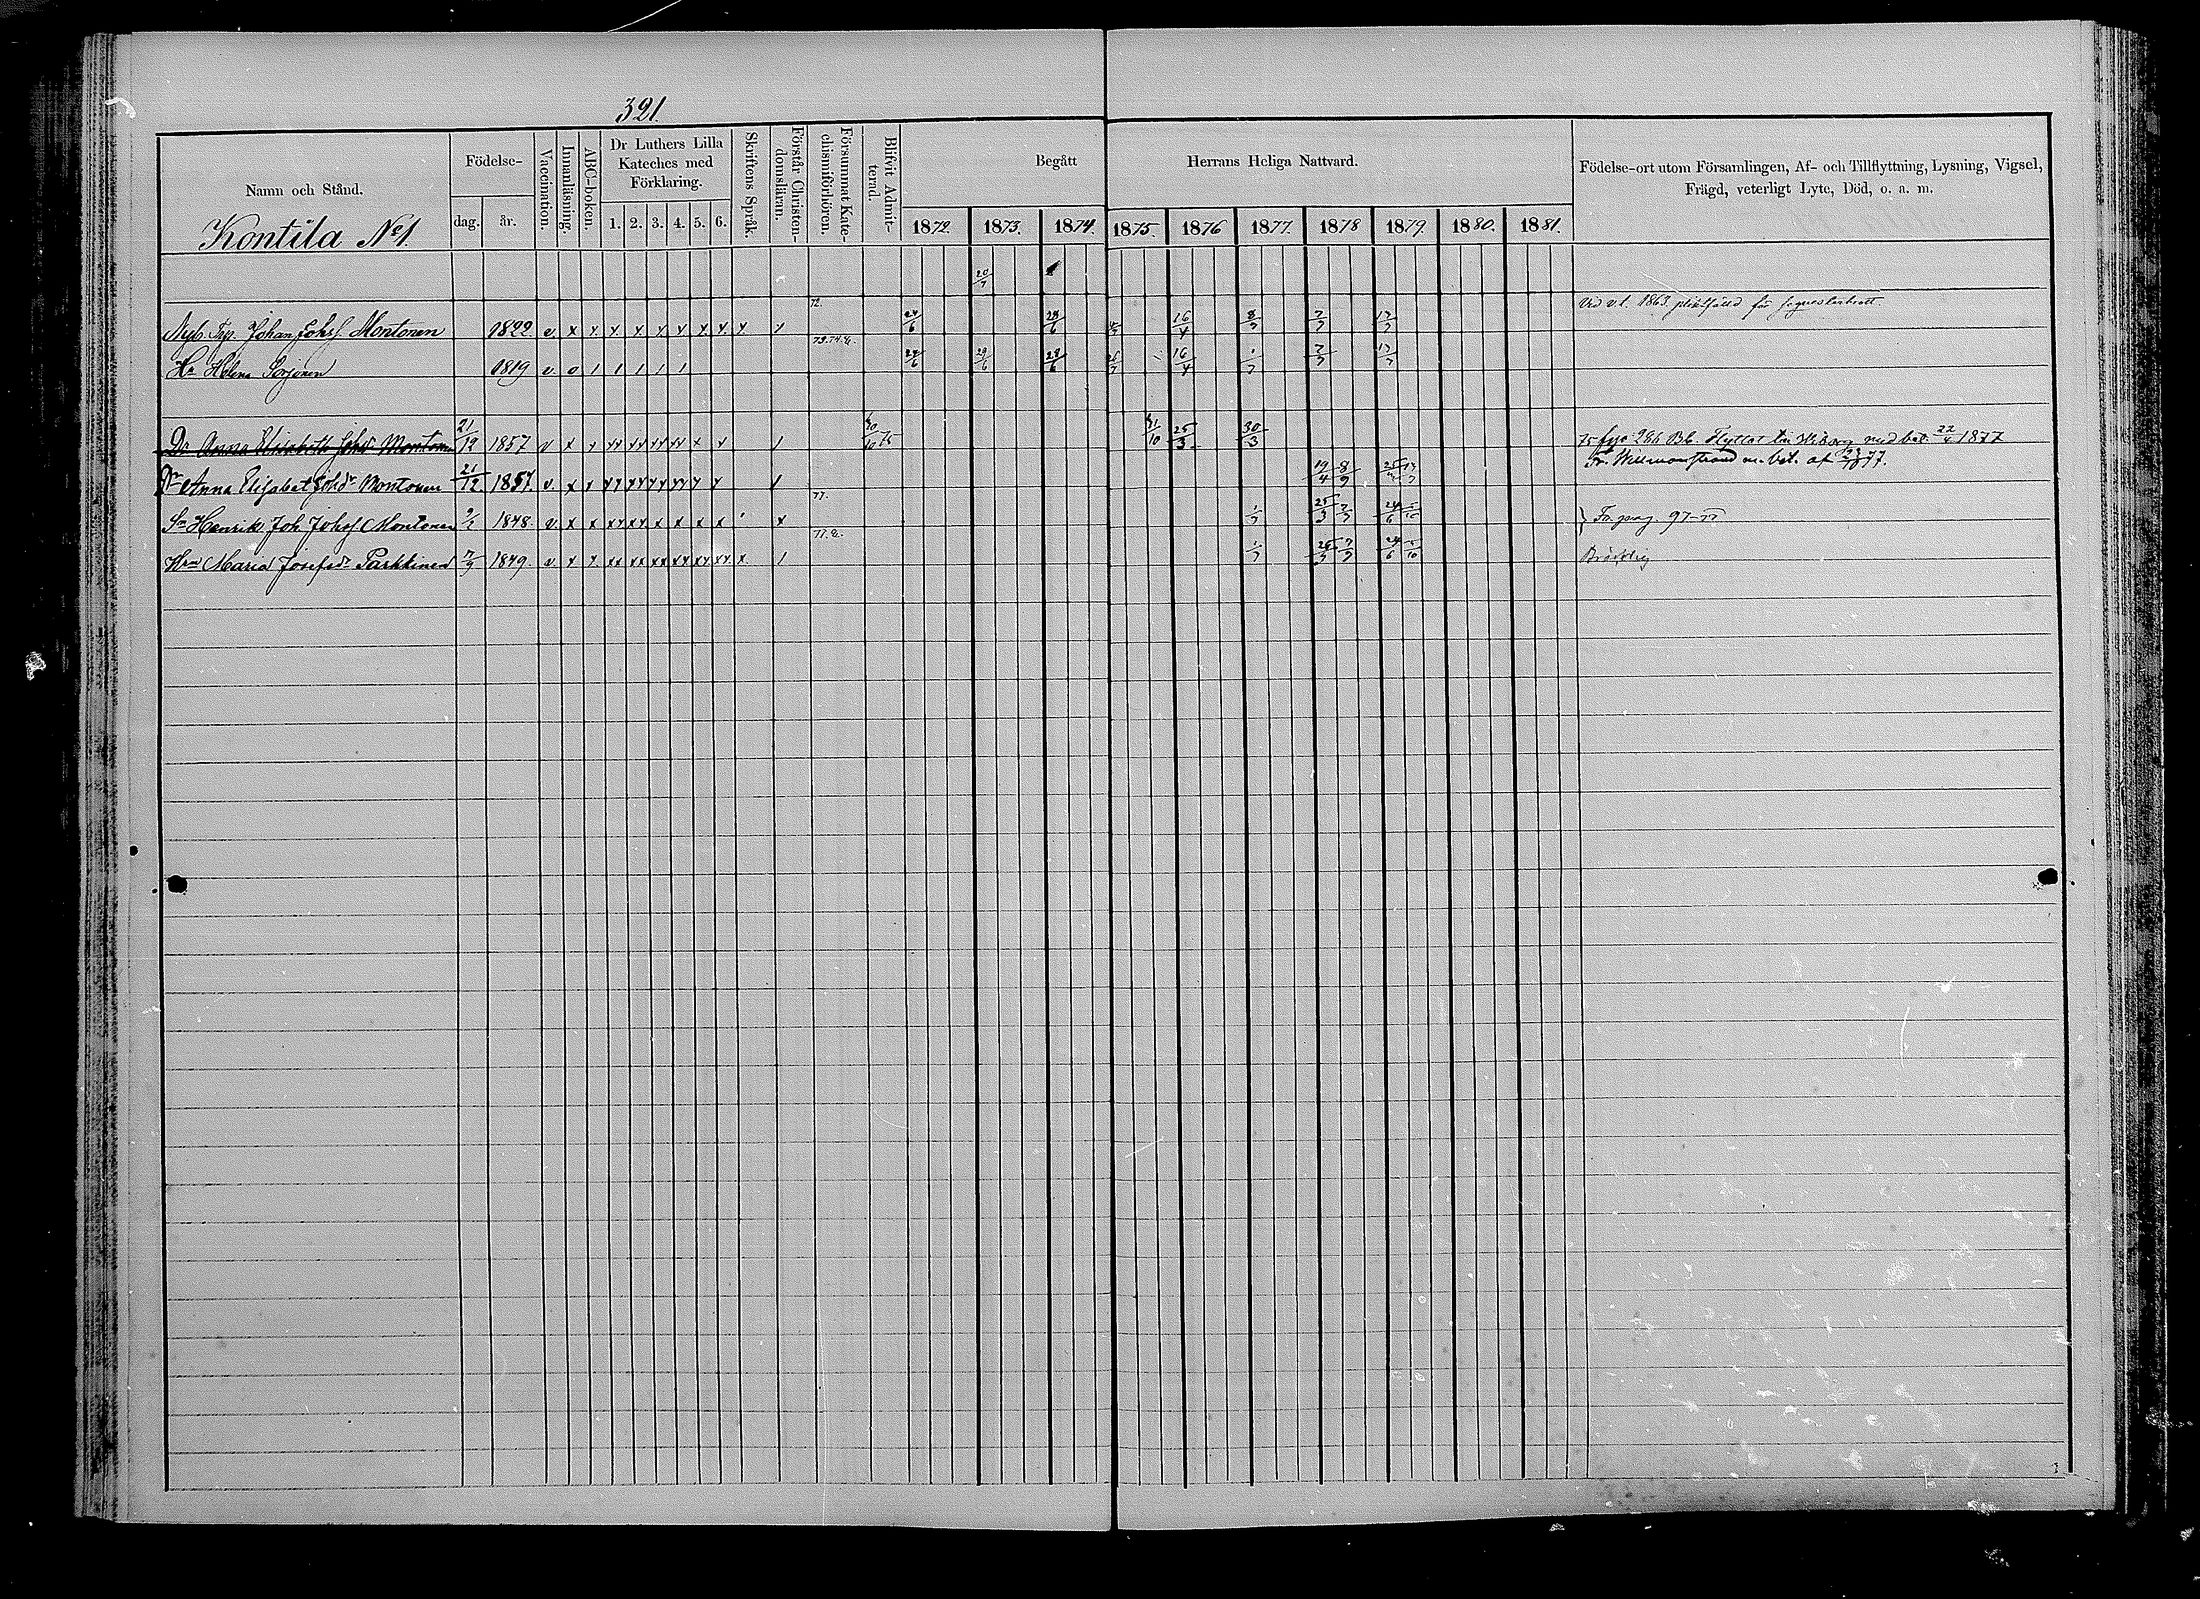 321
Namn och Stånd.
Födelse-
dag.
år.
Vaccination.
Innanläsning.
ABC-boken.
Dr Luthers Lilla
Kateches med
Förklaring.
1. 2. 3. 4. 5. 6.
Skriftens Språk.
Förstår Christen-
domsläran.
Försummat Kate-
chismiförhören.
Blifvit Admit-
terad.
Begått Herrans Heliga Nattvard.
1872. 1873. 1874. 1875. 1876 1877. 1878 1879. 1880. 1881.
Födelse-ort utom Församlingen, Af- och Tillflyttning, Lysning, Vigsel,
Frägd, veterligt Lyte, Död, o. a. m.
Kontila No 1.
20/7
72.
Vid v. t. 1863 för
Johan Johsf. Montonen 1822 v. x x x x x x x x x x x 24/6 28/6 16/4 8/7 7/7 13/7
73.74.
Hu Helena Sorjonen 1819 v. o 1 1 1 1 1 24/6 29/6 28/6 16/4 1/7 7/7 13/7
Dr Anna Elisabeth Johsdr Montonen 21/12 1857 v x x xx xx xx xx x x 1 30/10 75 31/10 25/3 30/3 75 286 Bb. Flyttat till Wiborg med bet. 1877
Fr. Willmanstrand m. bet. af 77.
Dr Anna Elisabet Johdr Montonen 21/12 1857. v. x x xx xx xx xx x x 1 19/4 8/9
77.
Sn Henrik Joh. Johsf. Montonen 9/2 1848. v. x x xx xx x x x x 1 x 1/7 25/3 7/7 24/6 5/10 } 97-77
77.
Hu Maria Josefsdr Parkkinen 7/9 1849. v. x x xx xx xx xx xx xx x. 1 1/7 25/3 7/7 24/6 5/10